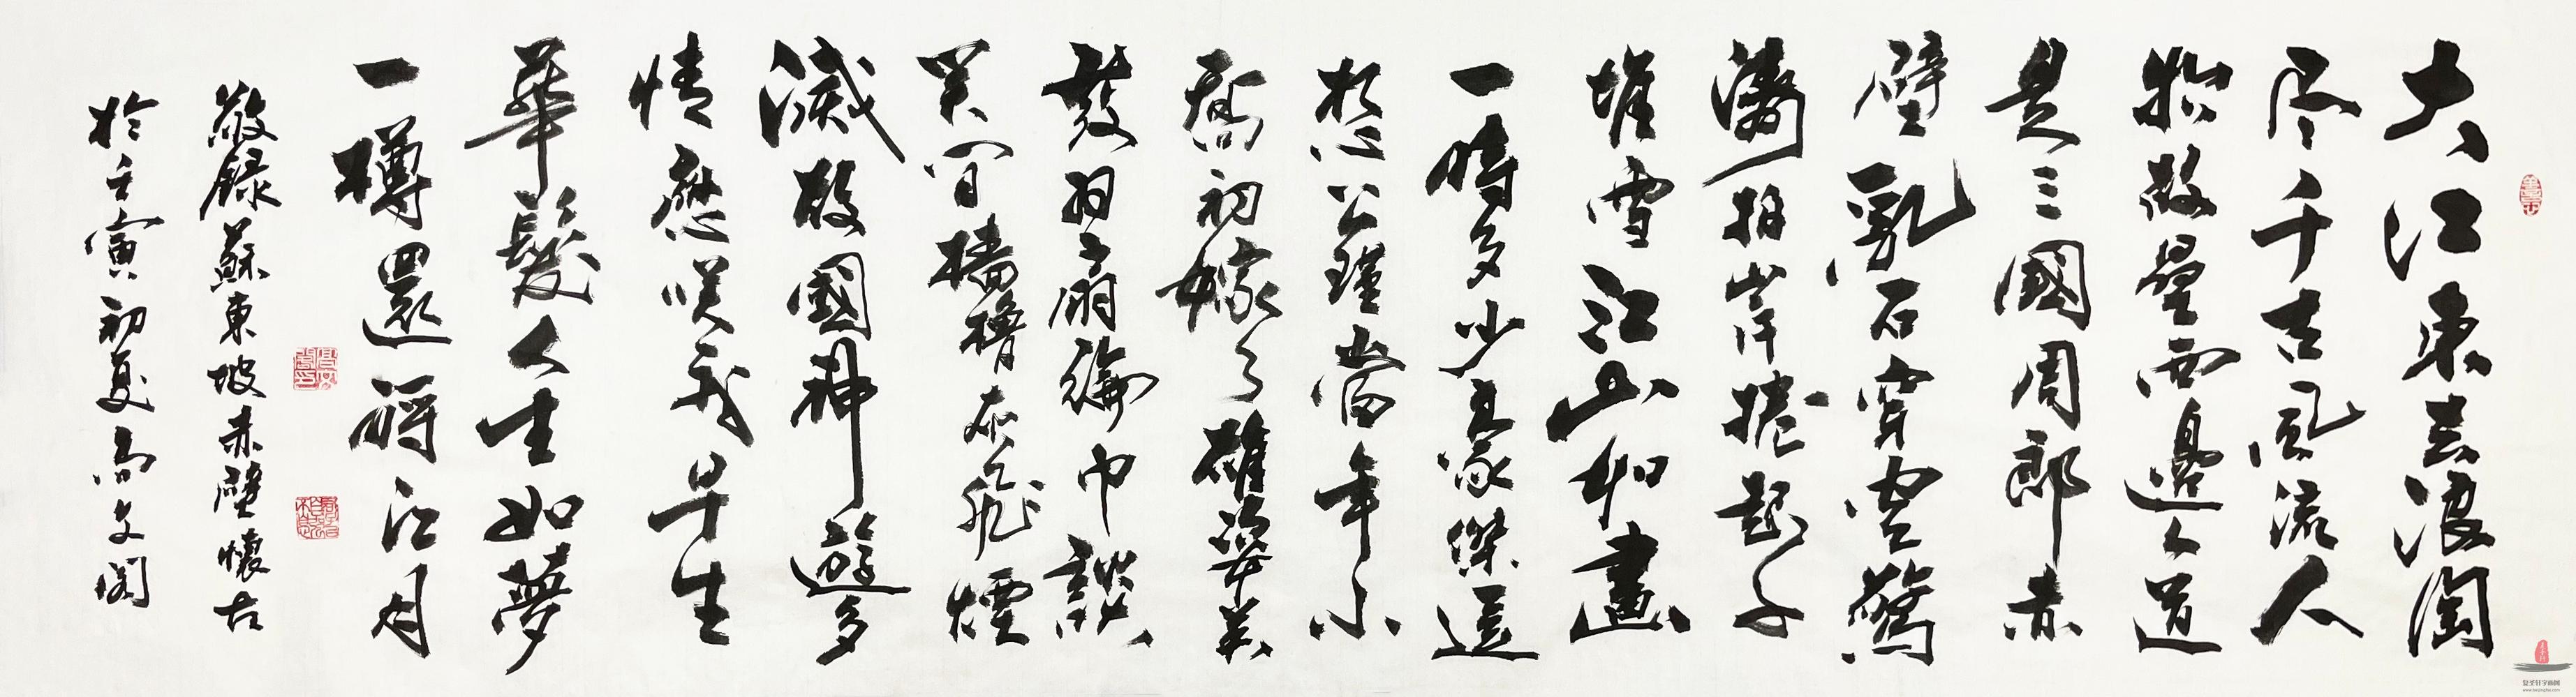 大江東去浪淘
尽千古風流人
物故壘西邊人道
是三國周郎赤
壁亂石穿空驚
濤拍岸捲起千
堆雪江山如畫
一時多少豪傑遥
想公瑾當年小
喬初嫁了雄姿英
發羽扇綸巾談
笑間檣櫓灰飛煙
滅故國神遊多
情應咲我早生
華髮人生如夢
一樽還酹江月
敬錄蘇東坡赤壁懷古
於壬寅初夏高文閣